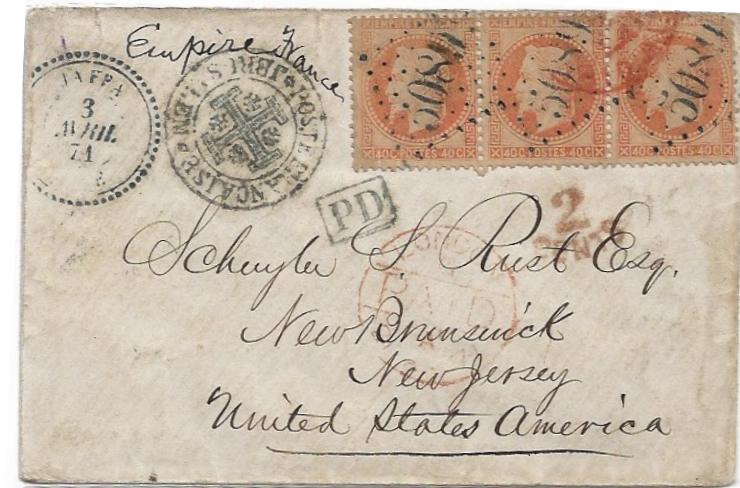 Empire France
JAFFA
3
AVRIL
71
POSTE FRANÇAISE JERUSALEM
EMPIRE FRANC
5089 5089 5089
40C POSTES 40C 40C POSTES 40C 40C POSTES 40C
PD
2
CENTS
LONDON
PAID
Schuyler S. Rust Esq.
New Brunswick
New Jersey
United States America